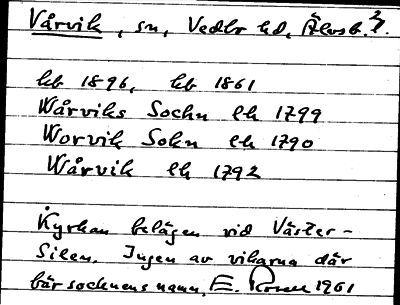 Vårvik, sn, Vedbo hd, Älvsb. l.
kb 1896, kb 1861
Wårviks Sochn ek 1799
Worvik Sokn ek 1790
Wårvik ek 1792
Kyrkan belägen vid Väster-
Silen. Ingen av vikarna där
bär socknens namn. E. 1961